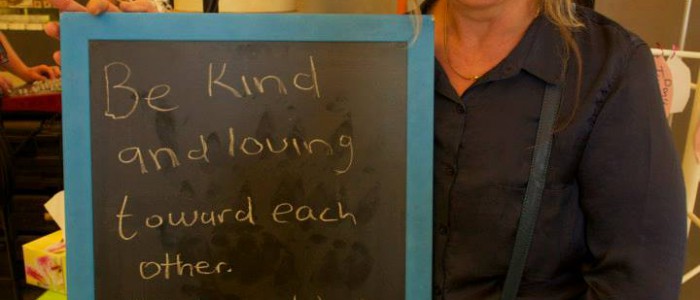 Be Kind
and loving
toward each
other.